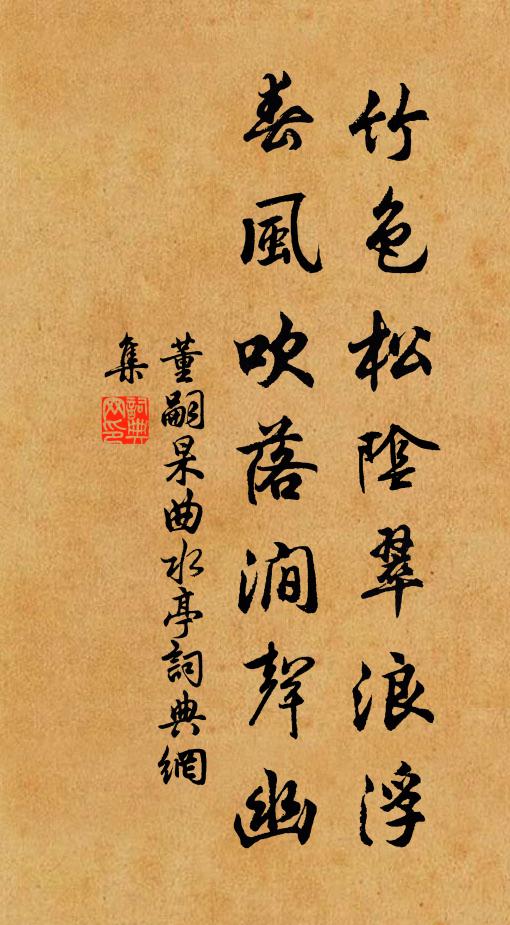 竹色松陰翠浪浮
春風吹落澗聲幽
董嗣杲曲水亭詞典網
集
詞典網印